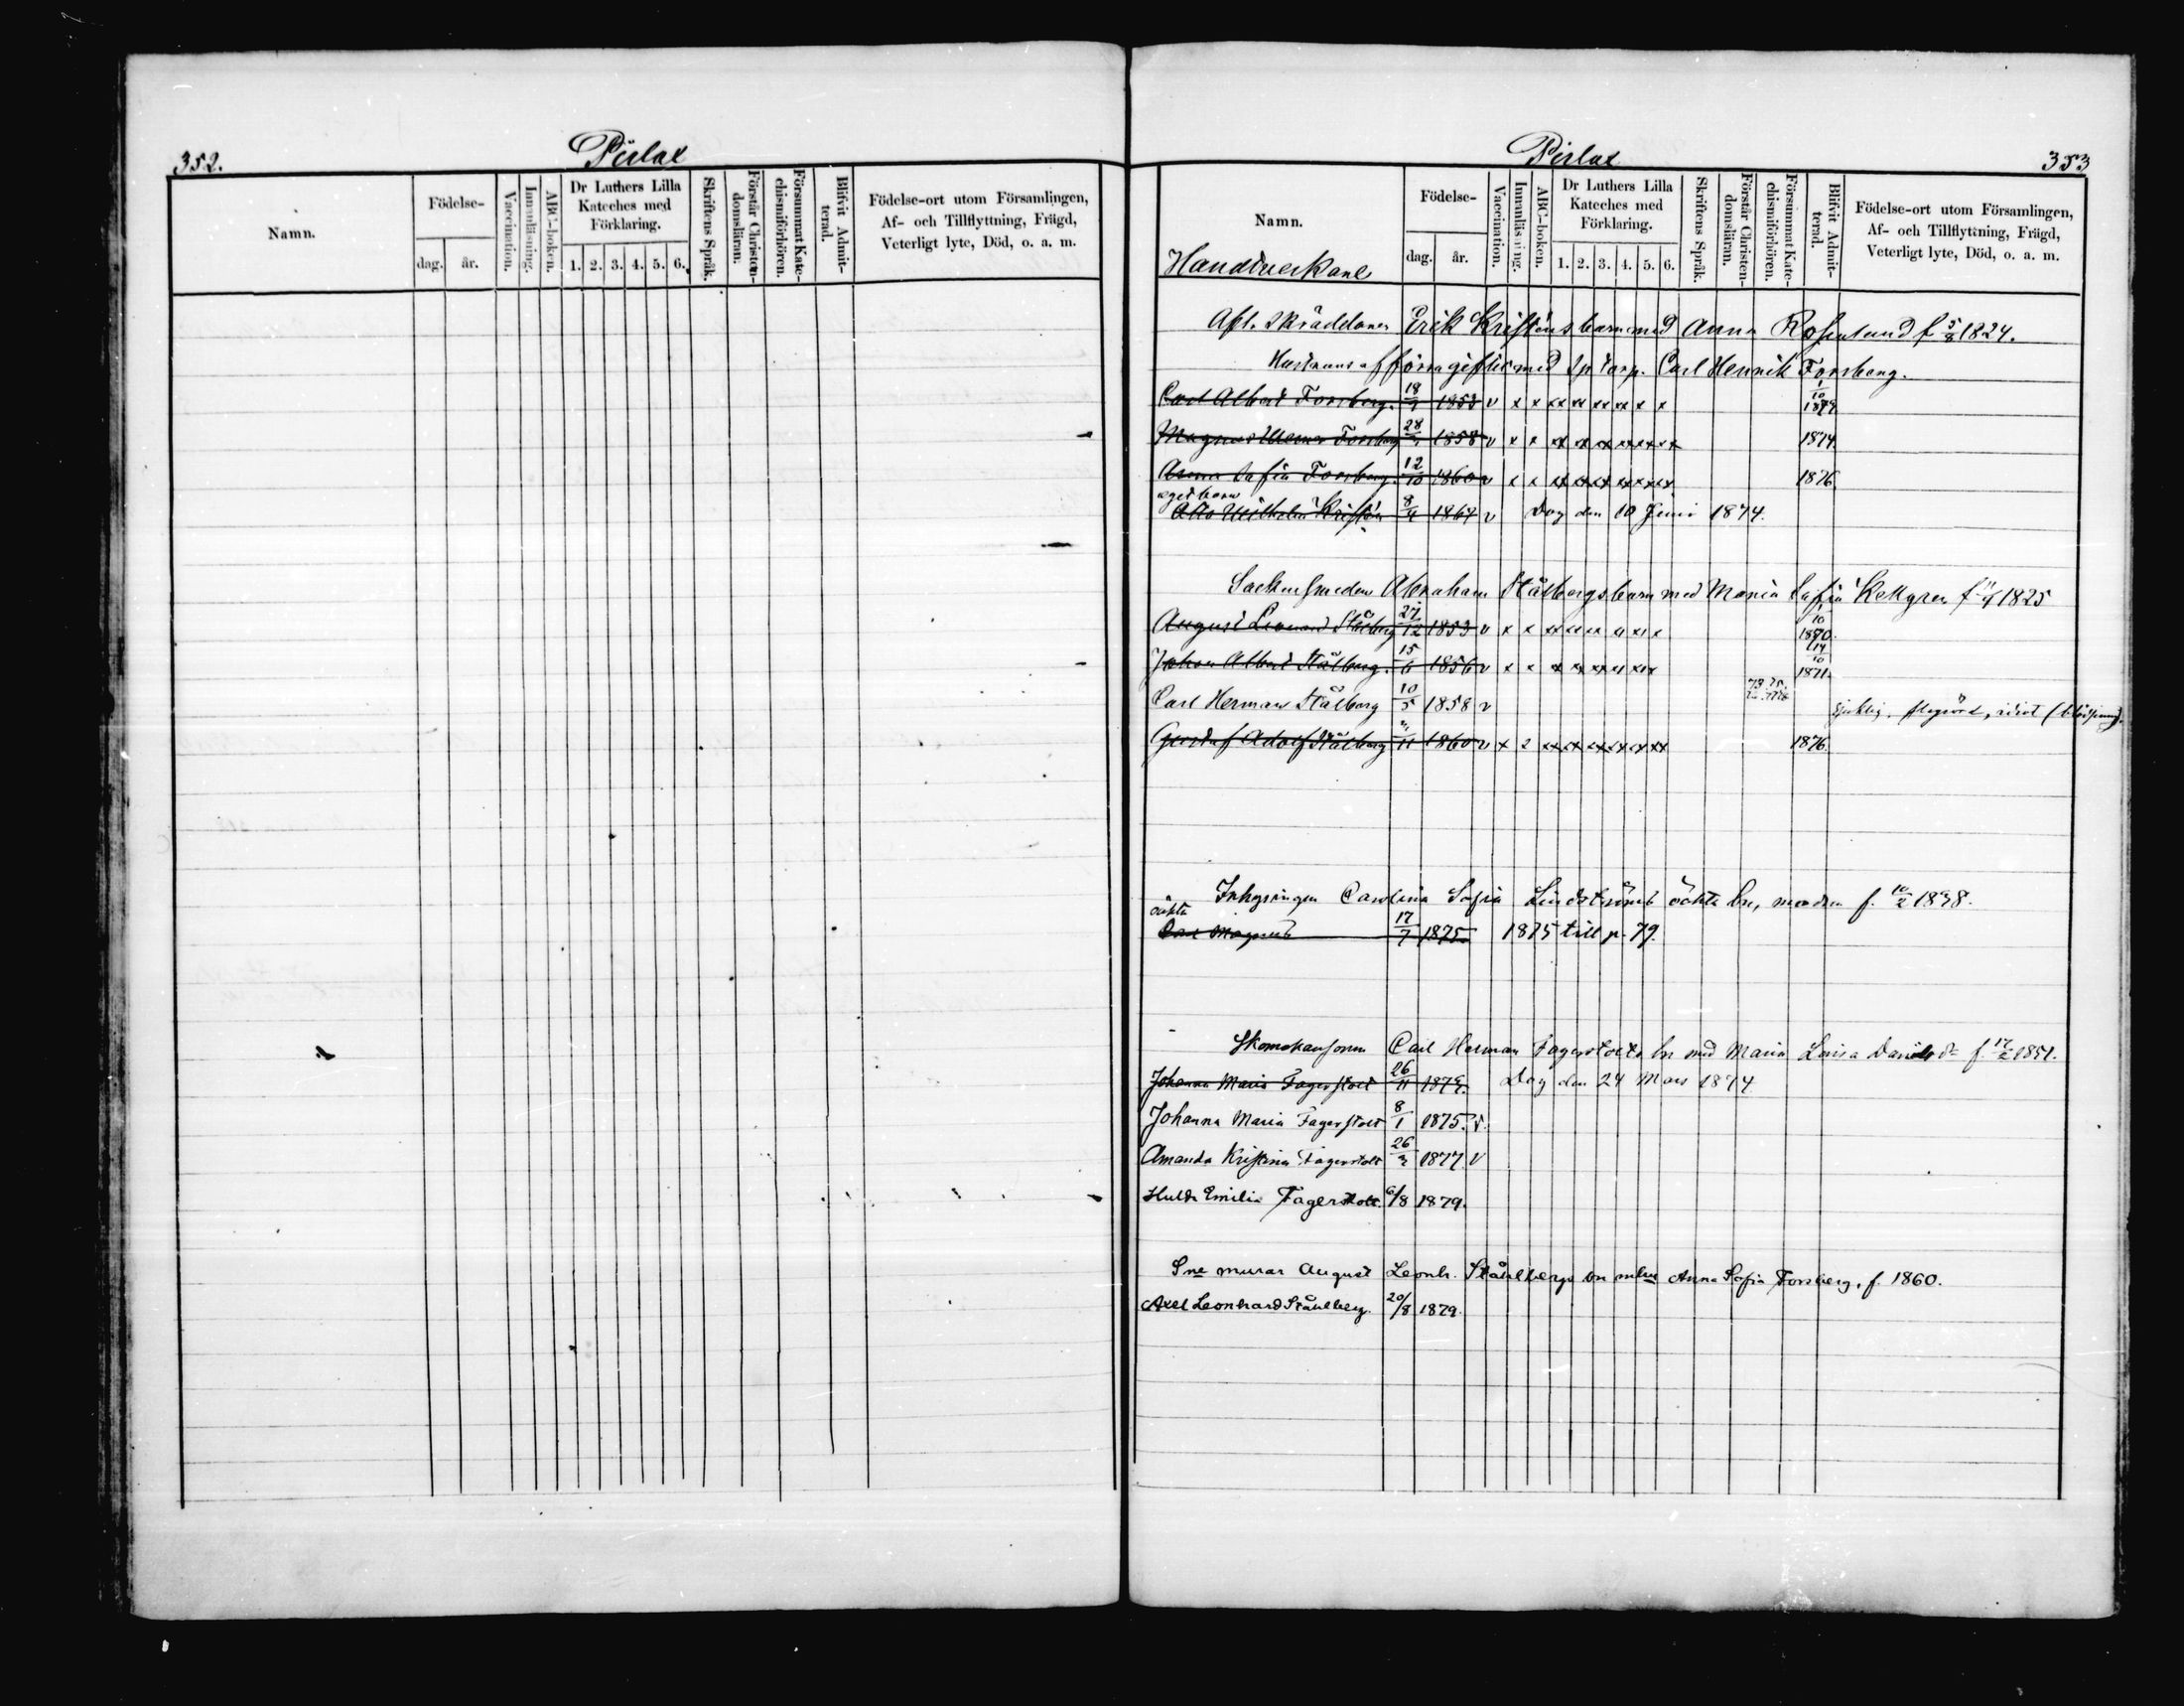 352.
Pirlax
Namn.
Födelse-
dag.
år.
Vaccination.
Innanläsning.
ABC-boken.
Dr Luthers Lilla
Kateches med
Förklaring.
1. 2. 3. 4. 5. 6.
Skriftens Språk.
Förstår Christen-
domsläran.
Försummat Kate-
chismiförhören.
Blifvit Admit-
terad.
Födelse-ort utom Församlingen,
Af- och Tillflyttning, Frägd,
Veterligt lyte, Död, o. a. m.
Pirlax
353
Namn.
Handtverkare
Födelse-
dag.
år.
Vaccination.
Innanläsning.
ABC-boken.
Dr Luthers Lilla
Kateches med
Förklaring.
1. 2. 3. 4. 5. 6.
Skriftens Språk.
Förstår Christen-
domsläran.
Försummat Kate-
chismiförhören.
Blifvit Admit-
terad.
Födelse-ort utom Församlingen,
Af- och Tillflyttning, Frägd,
Veterligt lyte, Död, o. a. m.
Afl. Skräddaren Erik Kristéns barn med Anna Rosenlund f. 5/8 1824.
Hustruns af förra giftet med Carl Henrik Forsberg.
Carl Albert Forsberg. 1853 v x x xx xx xx xx x x
Magnus Forsberg 28 1858 v x x xx xx xx xx xx xx 1874
Anna Sofia Forsberg. 12/10 1860 v x x xx xx xx xx xx xx 1876
eget barn
Otto Wilhelm Kristén 8/4 1867 v Dog den 10 Juni 1874.
Abraham Stålbergs barn med Maria Sofia Kellgren 1825
August Leonard Stålberg 27/12 1853 v x x xx xx xx xx xx x 10 1870.
Johan Albert Stålberg. 15/6 1856 v x x x xx xx xx xx 14/10 1871.
Carl Herman Stålberg 10/5 1858 v sjuklig, idiot
Gustaf Adolf Stålberg 11 1860 v x x xx xx xx xx xx xx 1876.
Inhysingen Carolina Sofia Lindströms oäkta bn, modren f. 10/2 1838.
oäkta
Carl Magnus 17/7 1875. 1875 till p. 79.
Carl Herman Fagerstolts bn med Maria Lovisa f. 17/2 1851.
Johanna Maria Fagerstolt 26/11 1873. Dog den 24 Mars 1874
Johanna Maria Fagerstolt 8/1 1875. v.
Amanda Kristina Fagerstolt 26/3 1877 v
Hulda Emilia Fagerstolt. 6/8 1879.
Sne murar August Leonh. Ståhlbergs bn mhu Anna Sofia Forsberg, f. 1860.
Axel Leonhard Ståhlberg. 20/8 1879.